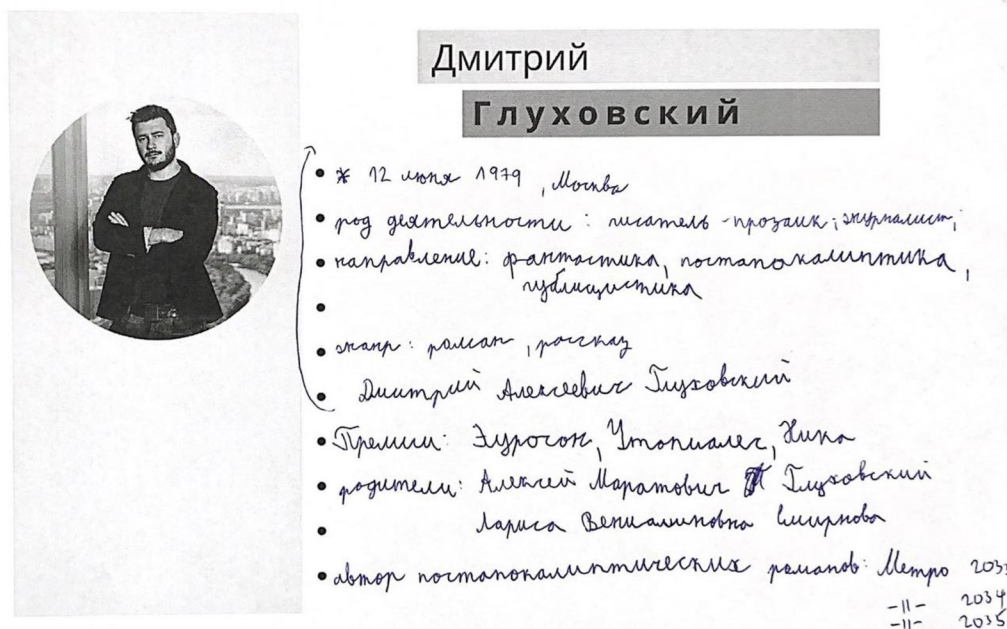 Дмитрий
Глуховский
* 12 июня 1979, Москва
род деятельности: писатель-прозаик; журналист;
направление: фантастика, постапокалиптика,
публицистика
жанр: роман, рассказ
Дмитрий Алексеевич Глуховский
Премии: Эурокон, Утопиалес, Ника
родители: Алексей Маратович Глуховский
Лариса Вениалиновна Смирнова
автор постапокалиптических романов: Метро 2033
-11- 2034
-11- 2035